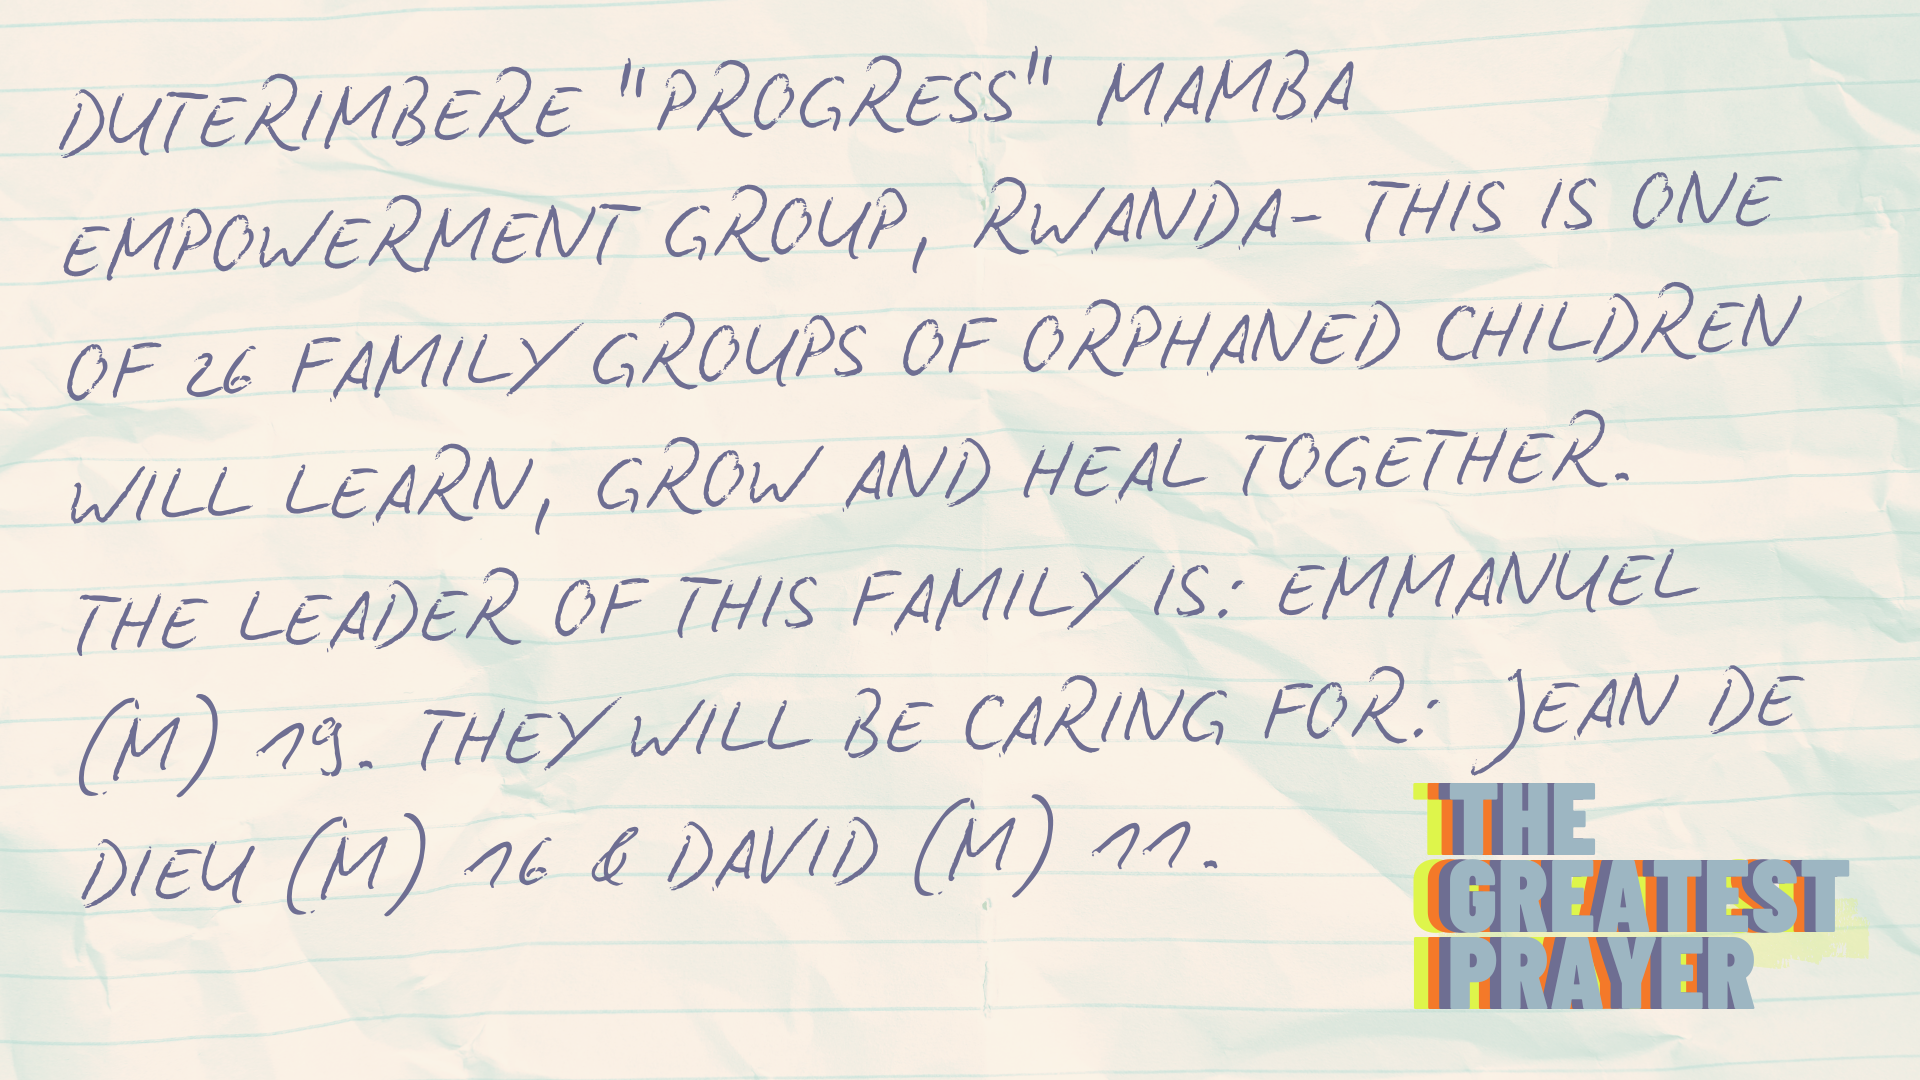 DUTERIMBERE "PROGRESS" MAMBA
EMPOWERMENT GROUP, RWANDA- THIS IS ONE
OF 26 FAMILY GROUPS OF ORPHANED CHILDREN
WILL LEARN, GROW AND HEAL TOGETHER.
THE LEADER OF THIS FAMILY IS: EMMANUEL
(M) 19. THEY WILL BE CARING FOR: JEAN DE
DIEU (M) 16 & DAVID (M) 11.
THE
GREATEST
PRAYER